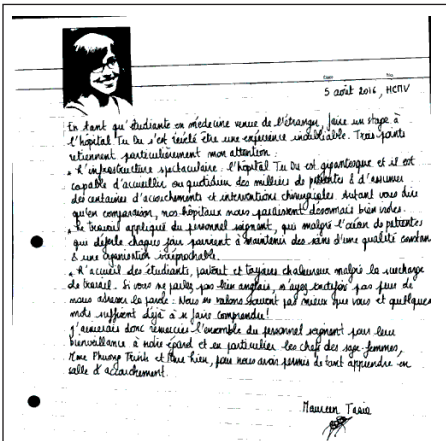 Date No
5 août 2016, HCMV
En tant qu'étudiante en médecine venue de l'étranger, faire un stage à
l'hôpital Tu Du s'est révélé être une expérience inoubliable. Trois points
retiennent particulièrement mon attention :
L'infrastructure spectaculaire : l'hôpital Tu Du est gigantesque et il est
capable d'accueillir au quotidien des milliers de patientes & d'assumer
des centaines d'accouchements et interventions chirurgicales. Autant vous dire
qu'en comparaison, nos hôpitaux nous paraissent désormais bien vides.
Le travail appliqué du personnel soignant, qui malgré l'océan de patientes
qui déferle chaque jour parvient à maintenir des soins d'une qualité constan
& une organisation irréprochable.
L'accueil des étudiants, partout et toujours chaleureux malgré la surcharge
de travail. Si vous ne parlez pas bien anglais, n'ayez pas peur de
nous adresser la parole : Nous ne valons souvent pas mieux que vous et quelques
mots suffisent déjà à se faire comprendre!
J'aimerais donc remercier l'ensemble du personnel soignant pour leur
bienveillance à notre égard et en particulier les chefs des sage-femmes,
Mme Phuong Trinh et Mme Hien, pour nous avoir permis de tant apprendre en
salle d'accouchement.
Maureen